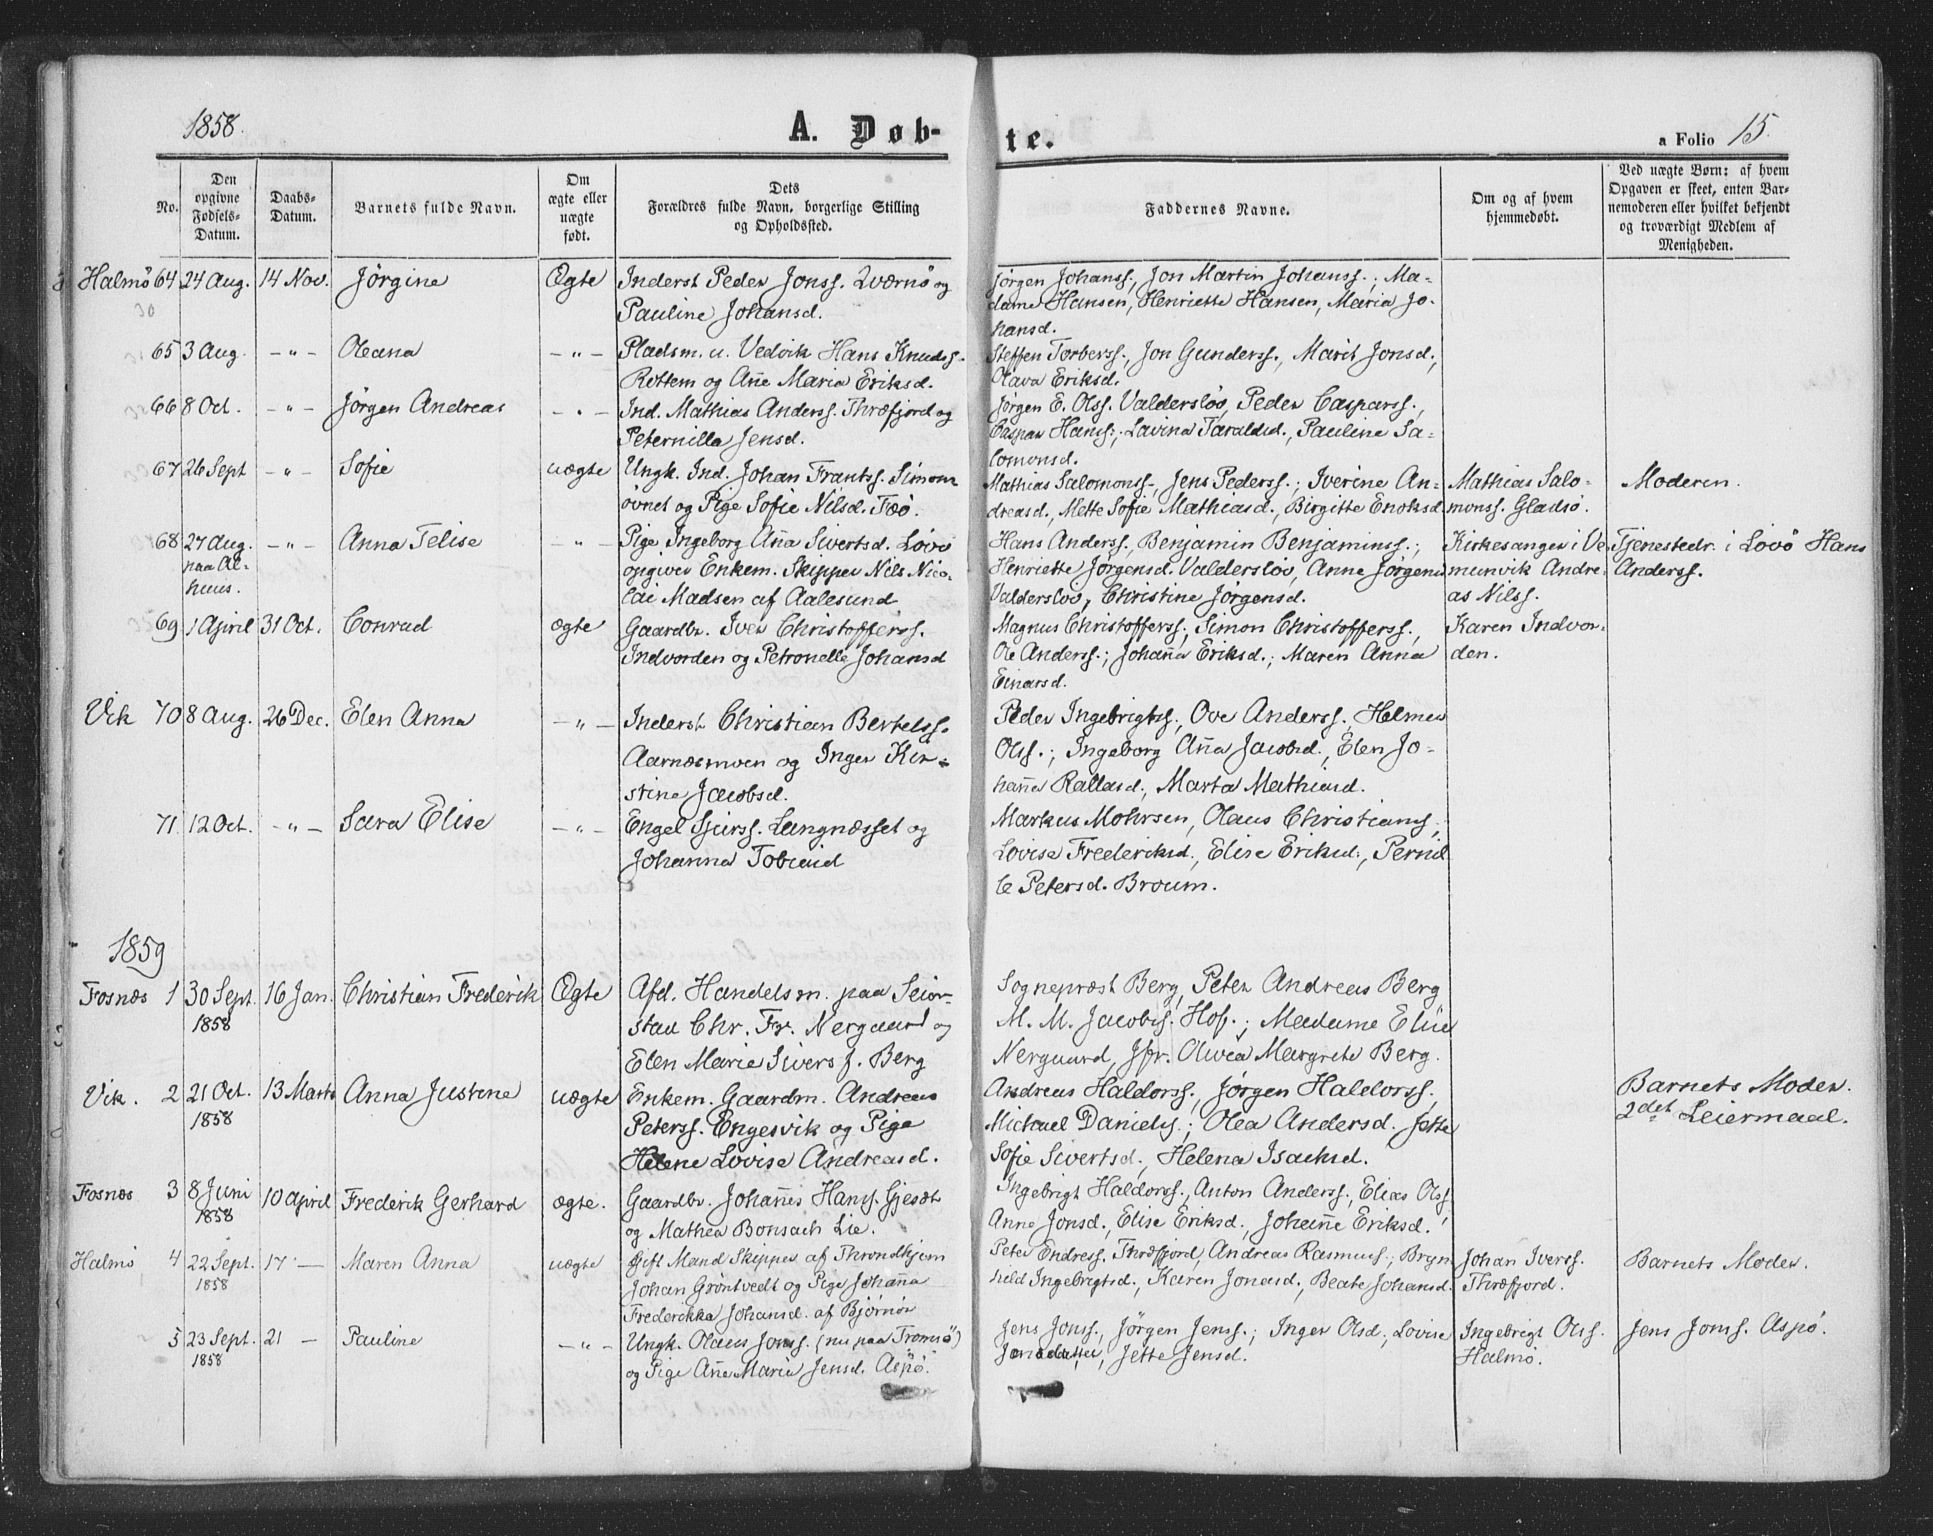 1858.
A. Døb-
te.
a Folio 15.
No.
Den
opgivne
Fødsels-
Datum.
Daabs-
Datum.
Barnets fulde Navn.
Om
ægte eller
uægte
født.
Dets
Forældres fulde Navn, borgerlige Stilling
og Opholdssted.
Faddernes Navne.
Om og af hvem
hjemmedøbt.
Ved uægte Børn: af hvem
Opgaven er skeet, enten Bar-
nemoderen eller hvilket bekjendt
og troværdigt Medlem af
Menigheden.
Halmø 64 24 Aug. 14 Nov. Jørgine Ægte
Inderst Peder Jonss. Qværnø og
Pauline Johansd.
Jørgen Johanss., Jon Martin Johanss.; Ma-
dame Hansen, Henriette Hansen, Maria Jo-
hansd.
65 3 Aug. -"- Oleana -"-
Pladsm. u. Vedvik Hans Knudss.
Rottem og Añe Maria Eriksd.
Steffen Torberss., Jon Gunderss., Marit Jonsd.,
Olava Eriksd.
66 8 Oct. -"- Jørgen Andreas -"-
Ind. Mathias Anderss. Thræfjord og
Peternilla Jensd.
Jørgen E. Olss. Valdersløv, Peder Casparss.,
Caspar Hanss.; Lavina Taraldsd., Pauline Sa-
lomonsd.
67 26 Sept -"- Sofie uægte
Ungk. Ind. Johan Frantss. Simon
øvnet og Pige Sofie Nilsd. Faø.
Mathias Salomonss., Jens Pederss.; Iverine An-
dreasd., Mette Sofie Mathiasd., Birgitte Enoksd.
Mathias Salo-
monss. Gladsø.
Moderen.
68 27 Aug.
paa Al-
huus.
-"- Anna Telise -"-
Pige Ingeborg Aña Sivertsd. Lovø
opgiver Enkem. Skipper Nils Nico-
lai Madsen af Aalesund
Hans Anderss., Benjamin Benjaminss.;
Henriette Jørgensd. Valdersløv, Anne Jørgensd
Valdersløv, Christine Jørgensd.
Kirkesanger i Ve
munvik Andre-
as Nilss.
Tjenestedr. i Lovø Hans
Anderss.
69 1 April 31 Oct. Conrad ægte
Gaardbr. Iver Christofferss.
Indvorden og Petronelle Johansd
Magnus Christofferss., Simon Christofferss.,
Ole Anderss.; Johaña Eriksd.; Maren Anna
Einarsd.
Karen Indvor-
den.
Vik 70 8 Aug. 26 Dec. Elen Anna -"-
Inderst Christian Bertelss.
Aarnæsmoen og Inger Kir-
stine Jacobsd.
Peder Ingebrigtss., Ove Anderss. Helmer
Olss.; Ingeborg Aña Jacobsd., Elen Jo-
haña Rallasd., Marta Mathiasd.
71 12 Oct. -"- Sara Elise -"-
Engel Sjurss. Langnæsset og
Johanna Tobiasd
Markus Mohrsen, Olaus Christianss.,
Lovise Frederiksd., Elise Eriksd., Pernil
le Petersd. Broum.
1859
Fosnæs 1 30 Sept.
1858
16 Jan. Christian Frederik Ægte
Afd. Handelsm. paa Seier-
stad Chr. Fr. Nergaard og
Elen Marie Sivers f. Berg
Sognepræst Berg, Peter Andreas Berg
M. M. Jacobss. Hof.; Madame Elise
Nergaard, Jfr. Olivea Margrete Berg.
Vik. 2 21 Oct.
1858
13 Marts Anna Justine uægte
Enkem. Gaardm. Andreas
Peterss. Engesvik og Pige
Helene Lovise Andreasd.
Andreas Haldorss., Jørgen Haldorss.
Michael Danielss.; Olea Andersd. Jette
Sofie Sivertsd., Helena Isaksd.
Barnets Moder.
2det Leiermaal.
Fosnæs 3 8 Juni
1858
10 April Frederik Gerhard ægte.
Gaardbr. Johañes Hanss. Gjesæt
og Mathea Bonsach Lie.
Ingebrigt Haldorss., Anton Anderss., Elias Olss.
Anne Jonsd., Elise Eriksd., Johañe Eriksd.
Halmø, 4 22 Sept.
1858
17 — Maren Anna uægte
Gift Mand Skipper af Throndhjem
Johan Grøntvedt og Pige Johaña
Frederikka Johansd. af Bjørnør
Peter Endress. Thræfjord, Andreas Rasmuss.; Bryn
hild Ingebrigtsd., Karen Jonasd., Beate Johansd.
Johan Iverss.
Thræfjord.
Barnets Moder.
5 23 Sept.
1858
21 — Pauline -"-
Ungk. Olaus Jonss. (nu paa Tromsø)
og Pige Añe Maria Jensd. Aspø.
Jens Jonss., Jørgen Jenss.; Inger Olsd., Lovise
Jonsdatter, Jette Jensd.
Ingebrigt Olss.
Halmø.
Jens Jonss. Aspø.